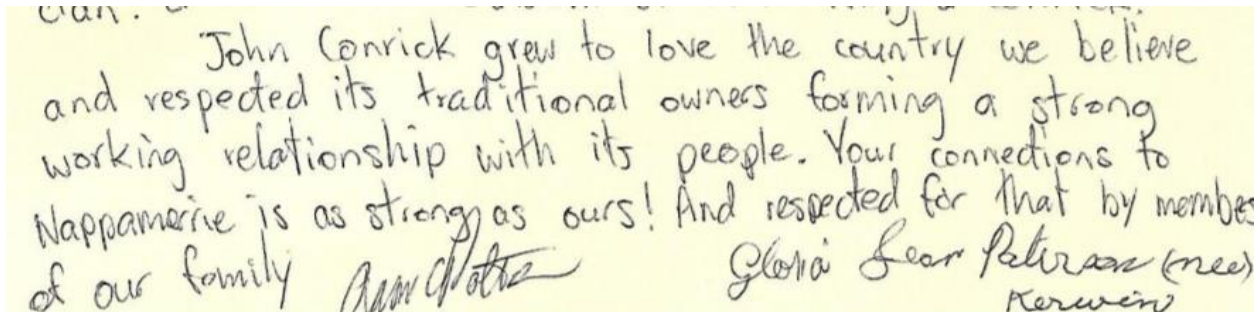 clan.
John Conrick grew to love the country we believe
and respected its traditional owners forming a strong
working relationship with its people. Your connections to
Nappamerrie is as strong as ours! And respected for that by membes
of our family Gloria Jean Paterson (nee)
Kerwin